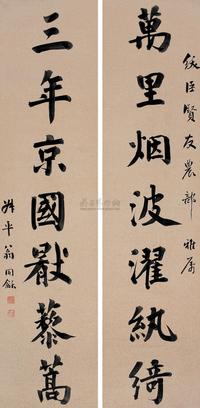 綏臣賢友農部雅属
萬里烟波濯紈綺
三年京國猒藜蒿
叔平翁同龢